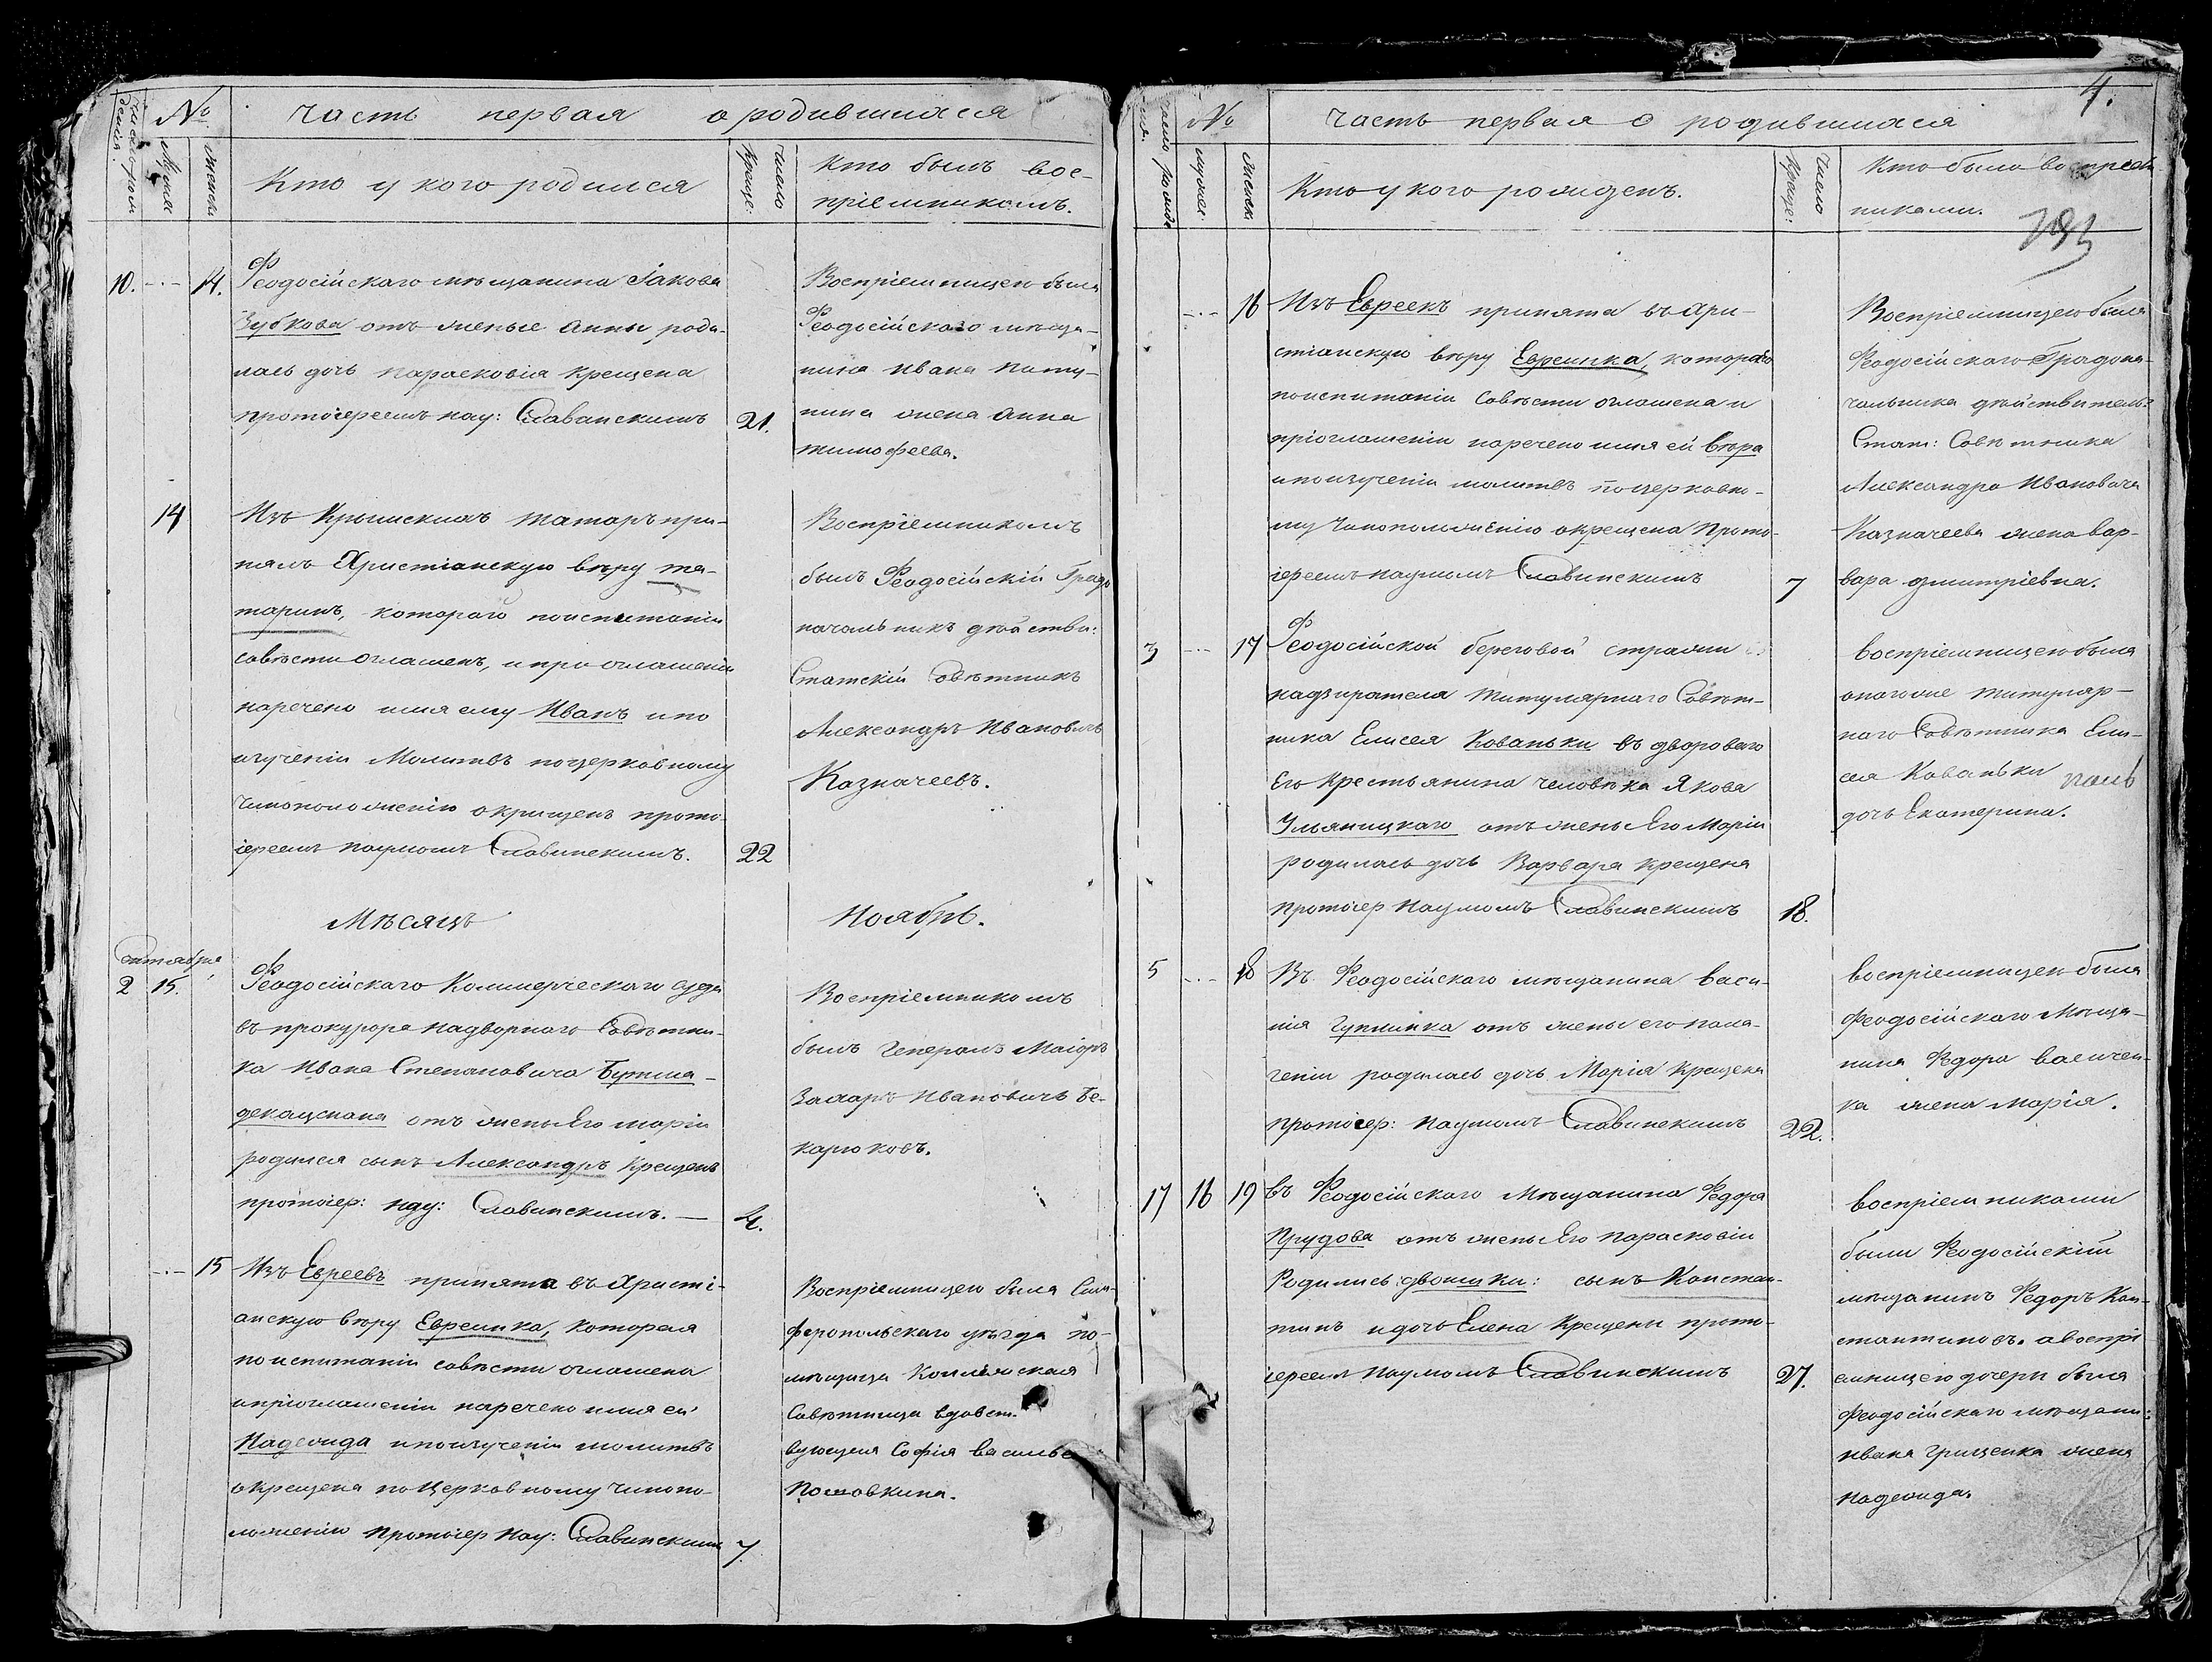 Число рож
денія.
№
Мужес
Женск
Часть первая о родившихся
Кто у кого родился
Число
Креще:
Кто былъ вос-
пріемникомъ.
10. -.- 14. Феодосійскаго мѣщанина Іакова
Зубкова отъ жены Анны роди-
лась дочь Парасковія Крещена
протоіереемъ нау: Славинскимъ 21.
Воспріемницею была
Феодосійскаго мѣща-
нина Ивана
нина жена Анна
Тимофеева.
14 Изъ Крымскихъ татаръ при-
нялъ Христіанскую вѣру та-
таринъ, котораго поиспытаніи
совѣсти оглашенъ, и при оглашеніи
наречено имя ему Иванъ и по
изученіи Молитвъ поцерковному
чиноположенію окрещенъ прото-
іереемъ Наумомъ Славинскимъ. 22
Воспріемникомъ
былъ Феодосійскій Градо
начальникъ дѣйстви:
Статскій Совѣтникъ
Александръ Ивановичъ
Казначеевъ.
Мѣсяцъ Ноябрь.
Октября
2 15. Феодосійскаго Коммерческаго суда
въ прокурора Надворнаго Совѣтни-
ка Ивана Степановича
отъ жены Его Маріи
родился сынъ Александръ Крещенъ
протоіер: Нау: Славинскимъ. — 4.
Воспріемникомъ
былъ Генералъ Маіоръ
Захаръ Ивановичъ Бе-
карюковъ.
-.- 15 Изъ Евреевъ принята въ Христі-
анскую вѣру Евреинка, которая
поиспытаніи совѣсти оглашена
ипріоглашеніи наречено имя ей
Надежда ипоизученіи молитвъ
окрещена по Церковному чинопо-
ложенію протоіер Нау: Славинскимъ 7.
Воспріемницею была Сим-
феропольскаго уѣзда по-
мѣщица Коллежская
Совѣтница вдовст-
вующая Софія Василье
Пошовкина.
4.
Число рожде
нія.
№
мужес:
женск:
Часть первая о родившихся
Кто у кого рожденъ.
Число
Креще:
Кто были воспріем
никами.
793
-.- 16 Изъ Евреекъ принята въ Хри-
стіанскую вѣру Евреинка, которая
поиспытаніи Совѣсти оглашена и
пріоглашеніи наречено имя ей Вѣра
ипоизученіи молитвъ поцерковно-
му чиноположенію окрещена Прото-
іереемъ Наумомъ Славинскимъ 7
Воспріемницею была
Феодосійскаго Градона-
чальника дѣйствитель:
Стат: Совѣтника
Александра Ивановича
Казначеева жена Вар-
вара Дмитріевна.
3 -.- 17 Феодосійской береговой стражи
надзирателя титулярнаго Совѣт-
ника Елисея Кованьки въ двороваго
Его крестьянина человѣка Якова
Ульяницкаго отъ жены Его Маріи
родилась дочь Варвара крещена
протоіер Наумомъ Славинскимъ 18.
воспріемницею была
оногоже титуляр-
наго Совѣтника Ели-
сея Кованьки
дочь Екатерина.
5 -.- 18 Въ Феодосійскаго мѣщанина Васи-
лія отъ жены его Пела-
геніи родилась дочь Марія Крещена
протоіер: Наумомъ Славинскимъ 22.
воспріемницею была
Феодосійскаго Мѣща-
нина Федора Василчен-
ка жена Марія.
17 16 19 въ Феодосійскаго Мѣщанина Федора
Прудова отъ жены Его Парасковіи
Родились: двоишки: сынъ Констан-
тинъ и дочь Елена Крещены прото-
іереем Наумомъ Славинскимъ 27.
воспріемниками
были Феодосійскій
мѣщанинъ Федоръ Кон-
стантиновъ. авоспрі
емницею дочери была
Феодосійскаго мѣщани:
Ивана Грищенка жена
Надежда.